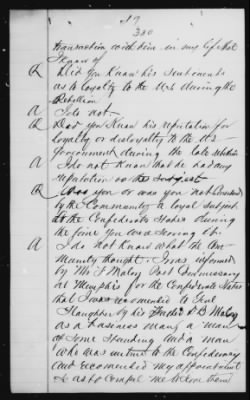 17
380
transaction with him in my life that
I Know of
Q Did you Know his Sentiments
as to loyalty to the U.S. during the
Rebellion
A I do not
Q Did you Know his reputation for
loyalty or disloyalty to the U.S.
Government during the late rebellion
A I do not Know that he had any
reputation on the subject
Q Was you or was you not Considered
by the Community a loyal Subject
of the Confederate States during
the time you was serving it
A I do not Know what the Com
munity thought. I was informed
by Mr Maloy Post Commissary
at Memphis for the Confederate States
that I was recommended to
by his D B Maloy
as a business man, a man
of Some Standing and a man
who was to the Confederacy
and recommended my appointment
& as to Compel me to